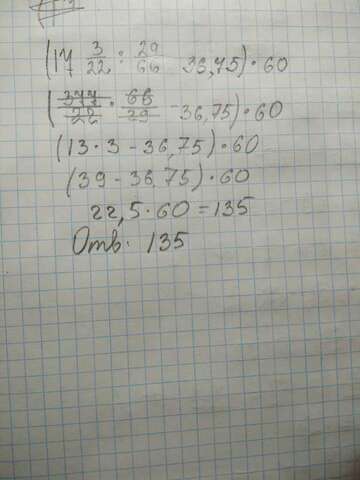 (17 3/22 : 29/66 36,75) · 60
(377/22 · 66/29 - 36,75) · 60
(13 · 3 - 36,75) · 60
(39 - 36,75) · 60
22,5 · 60 = 135
Отв. 135